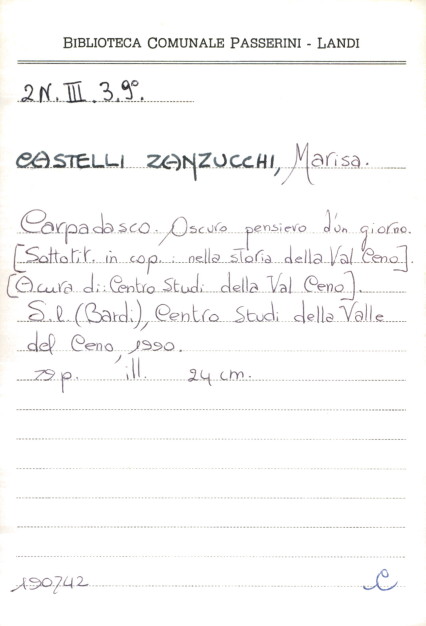 BIBLIOTECA COMUNALE PASSERINI - LANDI
2N. III. 3.9°.
CASTELLI ZANZUCCHI, Marisa.
Carpadasco. Oscuro pensiero d'un giorno.
[Sottotit. in cop. : nella storia della Val Ceno].
[A cura di: Centro Studi della Val Ceno].
S. l. (Bardi), Centro Studi della Valle
del Ceno, 1990.
79 p. ill. 24 cm.
190742
C